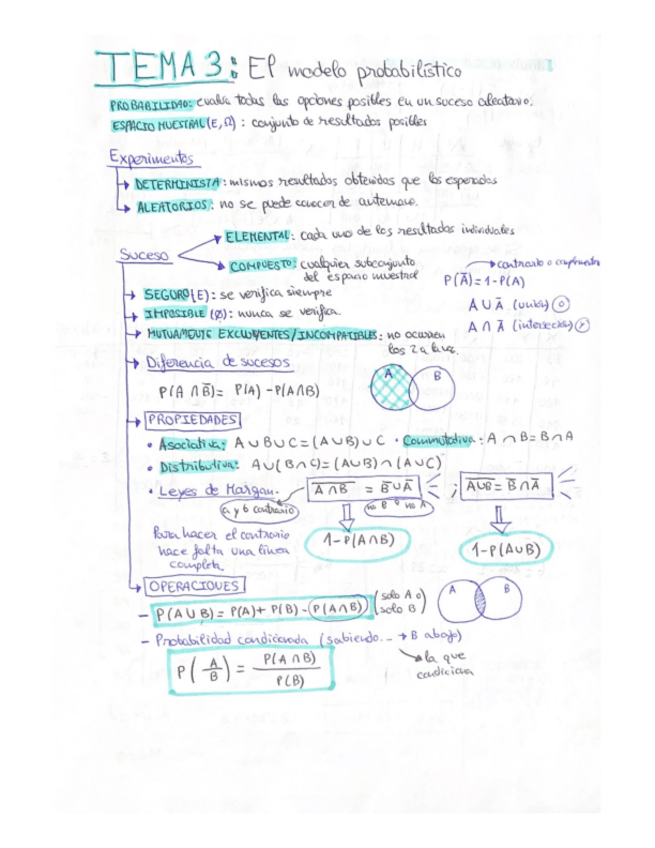 TEMA 3: El modelo probabilístico
PROBABILIDAD: evalúa todas las opciones posibles en un suceso aleatorio.
ESPACIO MUESTRAL (E, Ω): conjunto de resultados posibles
Experimentos
DETERMINISTA: mismos resultados obtenidos que los esperados
ALEATORIOS: no se puede conocer de antemano.
Suceso
ELEMENTAL: cada uno de los resultados individuales
COMPUESTO: cualquier subconjunto
del espacio muestral
contrario o complementa
P(A̅) = 1-P(A)
A ∪ A̅ (unión)
A ∩ A̅ (intersección)
SEGURO (E): se verifica siempre
IMPOSIBLE (Ø): nunca se verifica.
MUTUAMENTE EXCLUYENTES/INCOMPATIBLES: no ocurren
los 2 a la vez.
Diferencia de sucesos
P(A ∩ B̅) = P(A) - P(A∩B)
A B
PROPIEDADES
• Asociativa: A ∪ B ∪ C = (A ∪ B) ∪ C • Conmutativa: A ∩ B = B ∩ A
• Distributiva: A ∪ (B ∩ C) = (A ∪ B) ∩ (A ∪ C)
• Leyes de Morgan. A̅ ̅∩̅ ̅B̅ = B̅ ∪ A̅ ; A̅∪̅B̅ = B̅ ∩ A̅
a y b contrario no B o no A
Para hacer el contrario
hace falta una línea
completa.
1-P(A∩B) 1-P(A∪B)
OPERACIONES
- P(A ∪ B) = P(A) + P(B) - P(A∩B) (solo A o
solo B)
A B
- Probabilidad condicionada (sabiendo... → B abajo)
la que
condiciona
P(A/B) = P(A ∩ B)/P(B)